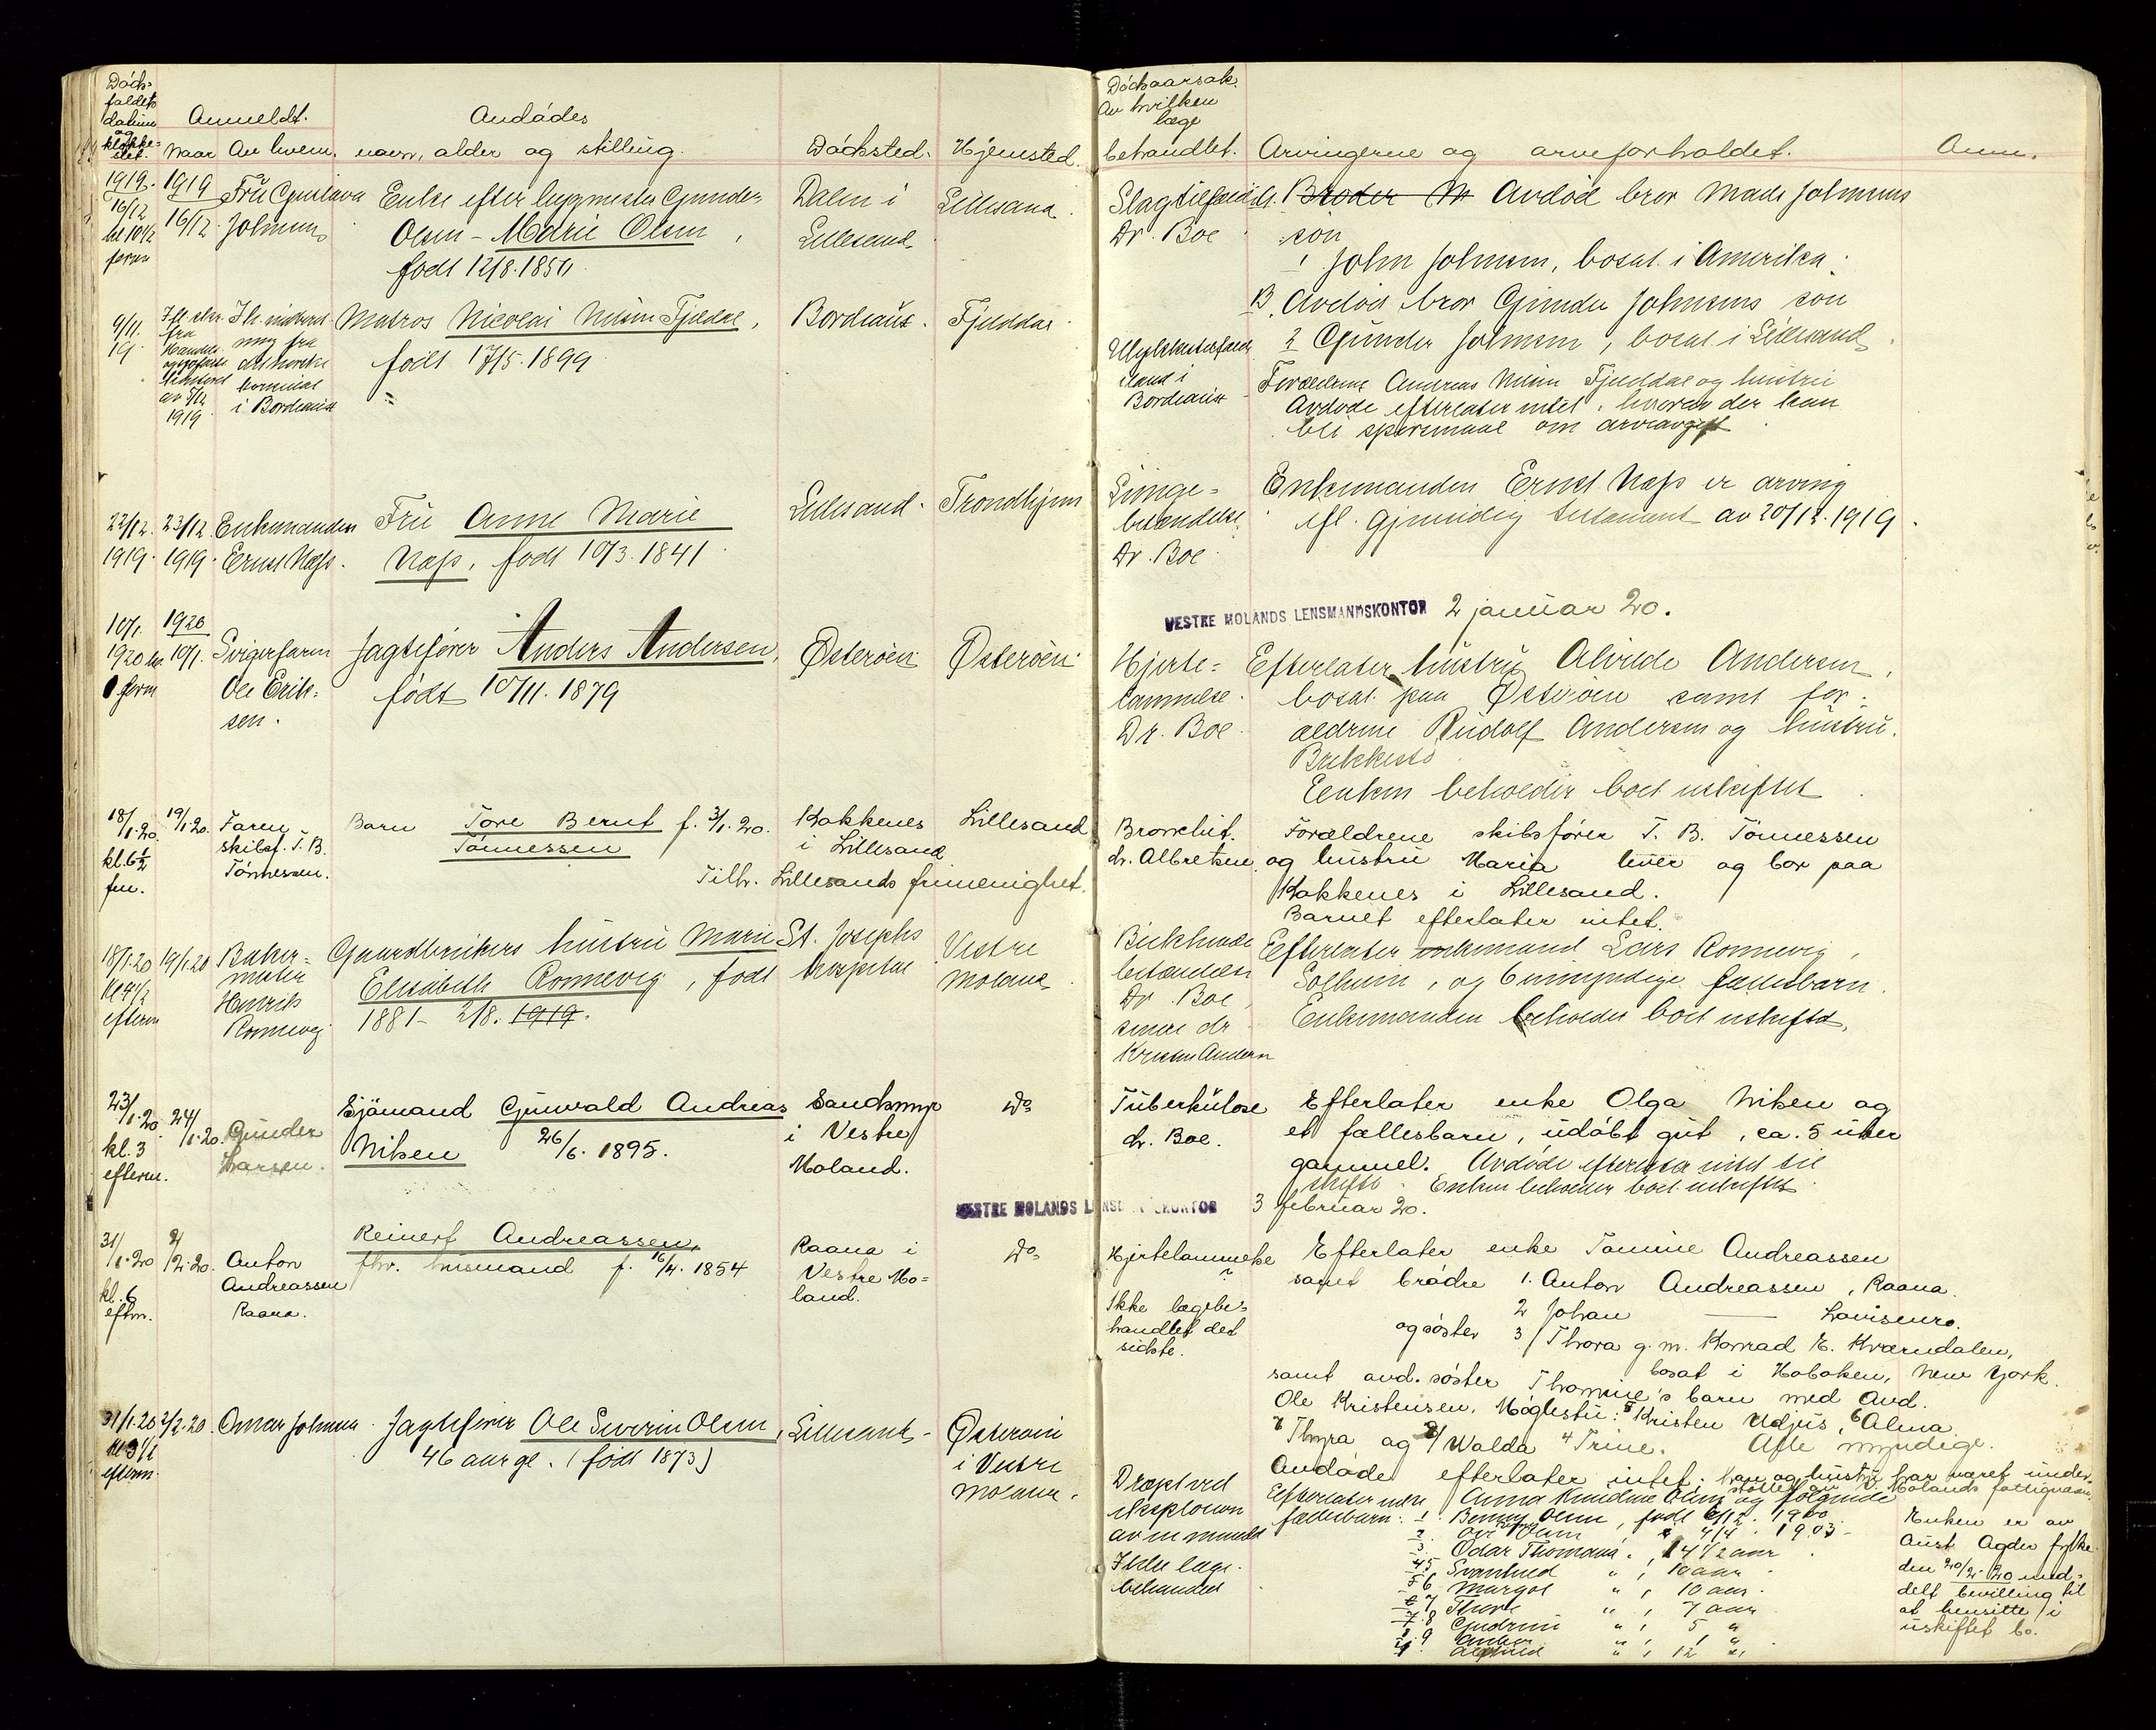 Döds-
faldets
datum
og
klokke-
slet.
Anmeldt.
Naar Av hvem.
Avdödes
navn, alder og stilling.
Dödssted.
Hjemsted.
Dödsaarsak.
Av hvilken
læge
behandlet.
Arvingerne og arveforholdet.
Anm.
1919.
16/12
kl 10 1/2
form
1919
16/12
Fru Gustava
Johnsens
Enke efter bygmester Gunder
Olsen - Marie Olsen,
født 12/8.
Dalen i
Lillesand
Lillesand.
Slagtilfælde.
Dr. Boe
Broder Avdød bror Mads Johnsens
søn
1 John Johnsen, bosat i Amerika.
B. Avdød bror Gunder Johnsens søn
2 Gunder Johnsen, bosat i Lillesand
9/11.
19
fra
av
1919.
fra
det norske
i Bordeaux
Matros Nicolai Nilsen Fjeldal,
født 17/5. 1899
Bordeaux.
Fjeldal
Ulykkestilfælde
i
Bordeaux
Forældrene Andreas Nilsen Fjelddal og hustru
Avdøde efterlater intet, hvorav der kan
bli spørsmaal om arveavgift
22/12.
1919.
23/12
1919.
Enkemanden
Ernst Næss.
Fru Anne Marie
Næss, født 10/3. 1841
Lillesand.
Trondhjem
Lunge-
betændelse
Dr. Boe
Enkemanden Ernst Næss er arving
efl. gjensidig testament av 20/12. 1919.
VESTRE MOLANDS LENSMANDSKONTOR 2 januar 20.
10/1.
1920 kl.
form
1920
10/1.
Svigerfaren
Ole Erik-
sen.
Jagtefører Anders Andersen,
født 10/11. 1879
Østerøen
Østerøen
Hjerte-
lammelse.
Dr. Boe
Efterlater hustru Alvilde Andersen,
bosat paa Østerøen samt for-
ældrene Rudolf Andersen og hustru.
Brekkestø
Enken beholder boet uskiftet
18/1.20.
kl. 6 1/2
fm.
19/1.20.
Faren
skibsf. T. B.
Tönnessen.
Barn Tore Bernt f. 3/1. 20.
Tönnessen
Kokkenes
i Lillesand
Lillesand
Tilh. Lillesands frimenighet.
Bronchit.
dr. Albretsen
Forældrene skibsfører T. B. Tönnessen
og hustru Maria lever og bor paa
Kokkenes i Lillesand.
Barnet efterlater intet.
18/1.20
kl 4 1/2
efterm
19/1.20
Baker-
mester
Henrik
Ronnevig
Gaardbrukers hustru Marie
Elisabeth Ronnevig, født
1881 - 2/8. 1919.
St. Josephs
hospital
Vestre
Moland
betændelse
Dr. Boe,
senere dr
Kristen Andersen
Efterlater enkemand Lars Ronnevig,
Solheim, og 6 umyndige fællesbarn.
Enkemanden beholder boet uskiftet.
23/1.20.
kl. 3
efterm.
24/1.20.
Gunder
Larsen.
Sjömand Gunvald Andreas
Nilsen 26/6. 1895.
Sandsmyr
i Vestre
Moland.
Do
Tuberkulose
dr. Boe.
Efterlater enke Olga Nilsen og
et fællesbarn, udöbt gut, ca. 5 uker
gammel. Avdøde efterlater intet til
skifte. Enken beholder boet uskiftet
VESTRE MOLANDS LENSMANDSKONTOR 3 februar 20.
31/1.20
kl. 6
eftm.
2/2.20.
Anton
Andreassen
Raana.
Reinert Andreassen,
fhv. husmand f. 16/4. 1854
Raana i
Vestre Mo-
land.
Do
Hjertelammelse
?
Ikke lægebe-
handlet det
sidste.
Efterlater enke Tomine Andreassen
samt brödre 1. Anton Andreassen, Raana.
2 Johan — Lovisenro.
og söster 3/ Thora g. m. Konrad E. Kværndalen,
bosat i Hoboken, New York.
samt avd. söster Thomine's barn med Avd.
Ole Kristensen, Möglestu: 5 Kristen Udjus, 6 Alma
7 Thyra og 8/ Walda 4 Trine. Alle myndige.
Avdöde efterlater intet. han og hustru har været under-
støttet av V. Molands fattigvæsen.
31/1.20
efterm.
2/2.20.
Omar Johnsen.
Jagtefører Ole Severin Olsen,
46 aar gl. (født 1873)
Lillesand-
Østerøen
i Vestre
Moland.
Dræpt ved
eksplosion
av en mine
Ikke læge-
behandlet
Efterlater enke Anna Knudine Olsen og følgende
fællesbarn: 1. Benny Olsen, født 6/12. 1900
2. Olsen " 4/4 1903 -
3. Odar Thomas ", 14 1/2 aar
Svanhild ", 10 aar
Margot ", 10 aar
", 7 aar
Gudrun ", 5 "
", 1 "
", 12 "
Enken er av
Aust Agder fylke
den 20/2-20 med-
delt bevilling til
at hensitte i
uskiftet bo.